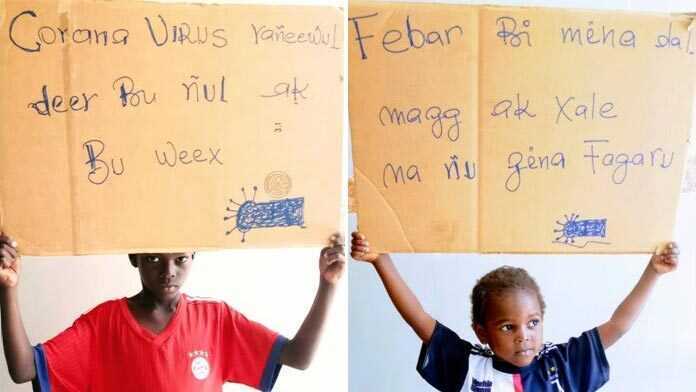 Corona VIRUS rañeewul
deer Bu ñul ak
Bu weex
Febar Bi mëna dal
magg ak Xale
na ñu gëna Fagaru